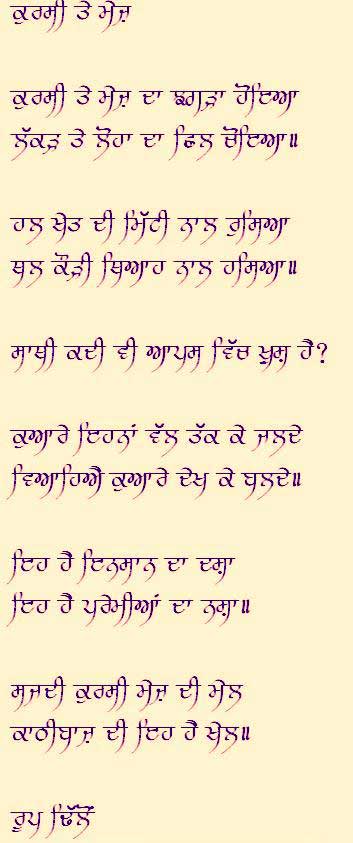 ਕੁਰਸੀ ਤੇ ਮੇਜ਼
ਕੁਰਸੀ ਤੇ ਮੇਜ਼ ਦਾ ਝਗੜਾ ਹੋਇਆ
ਲੱਕੜ ਤੇ ਲੋਹਾ ਦਾ ਛਿਲ ਚੋਇਆ॥
ਹਲ ਖੇਤ ਦੀ ਮਿੱਟੀ ਨਾਲ ਰੁਸਿਆ
ਥਲ ਕੌੜੀ ਥਿਆਹ ਨਾਲ ਹਸਿਆ॥
ਸਾਥੀ ਕਦੀ ਵੀ ਆਪਸ ਵਿੱਚ ਖੁਸ਼ ਹੈ?
ਕੁਆਰੇ ਇਹਨਾਂ ਵੱਲ ਤੱਕ ਕੇ ਜਲਦੇ
ਵਿਆਹਿਐ ਕੁਆਰੇ ਦੇਖ ਕੇ ਬਲਦੇ॥
ਇਹ ਹੈ ਇਨਸਾਨ ਦਾ ਦਸ਼ਾ
ਇਹ ਹੈ ਪਰੇਮੀਆਂ ਦਾ ਨਸ਼ਾ॥
ਸਜਦੀ ਕੁਰਸੀ ਮੇਜ਼ ਦੀ ਮੇਲ
ਕਾਠੀਬਾਜ਼ ਦੀ ਇਹ ਹੈ ਖੇਲ॥
ਰੂਪ ਢਿੱਲੋਂ